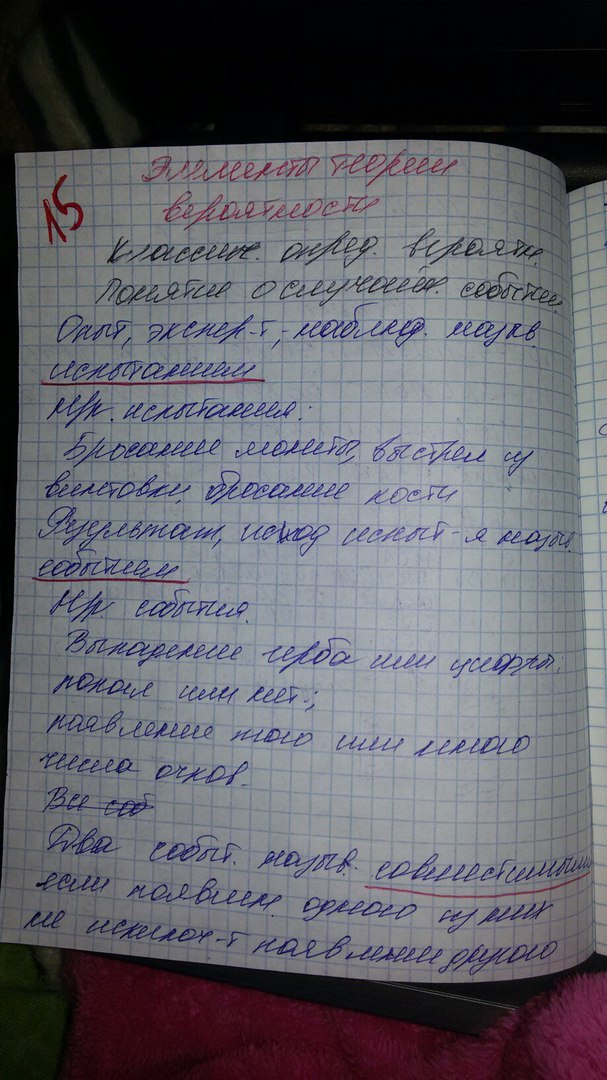 15
Элементы теории
вероятности
Классич. опред. вероятн.
Понятие о случайн. событии.
Опыт, экспер-т, наблюд. назыв.
испытанием
Нр. испытания:
Бросание монеты, выстрел из
винтовки, бросание кости
Результат, исход испыт-я назыв.
событием
Нр. события.
Выпадение герба или цифры;
попал или нет;
появление того или иного
числа очков.
Все соб
Два событ. назыв. совместимыми
если появлен. одного из них
не исключ-т появление другого